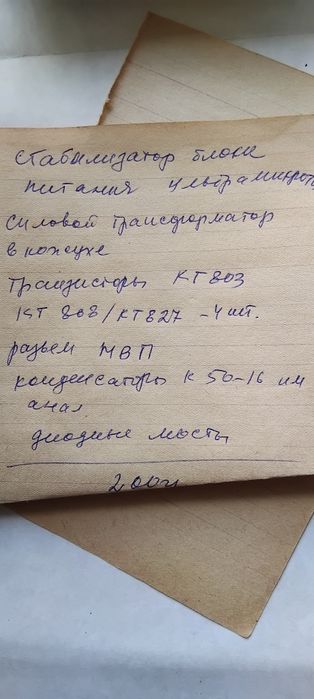 Стабилизатор блока
питания ультрамикрото
силовой трансформатор
в кожухе
транзисторы КТ803
КТ 808/КТ827 -4 шт.
разъем МВП
конденсаторы К 50-16 им
анал.
диодные мосты
200